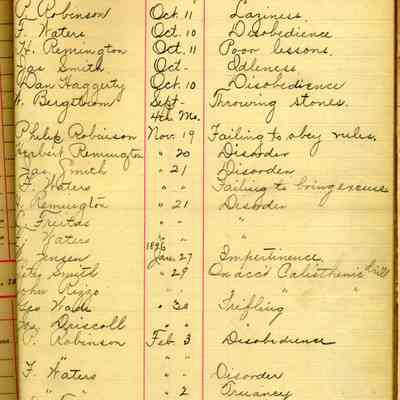 P. Robinson Oct. 11 Laziness.
F. Waters Oct. 10 Disobedience
H. Remington Oct. 11 Poor lessons.
Jas Smith Oct - Idleness
Dan Haggerty Oct. 10 Disobedience
W. Bergstrom Sept - Throwing stones.
4th Mo.
Philip Robinson Nov. 19 Failing to obey rules.
Herbert Remington " 20 Disorder
Jas. Smith " 21 Disorder
F. Waters " " Failing to bring excuse
H. Remington " 21 Disorder
Freitas " " "
Waters " " "
1896
Jensen Jan. 27 Impertinence.
Smith " 29 On acc't Calisthenic drill
John Rizzo " " " " "
Geo Wade " 30 Trifling
Driscoll " " "
P. Robinson Feb 3 Disobedience
" " "
F. Waters " " Disorder
" " " 2 Truancy